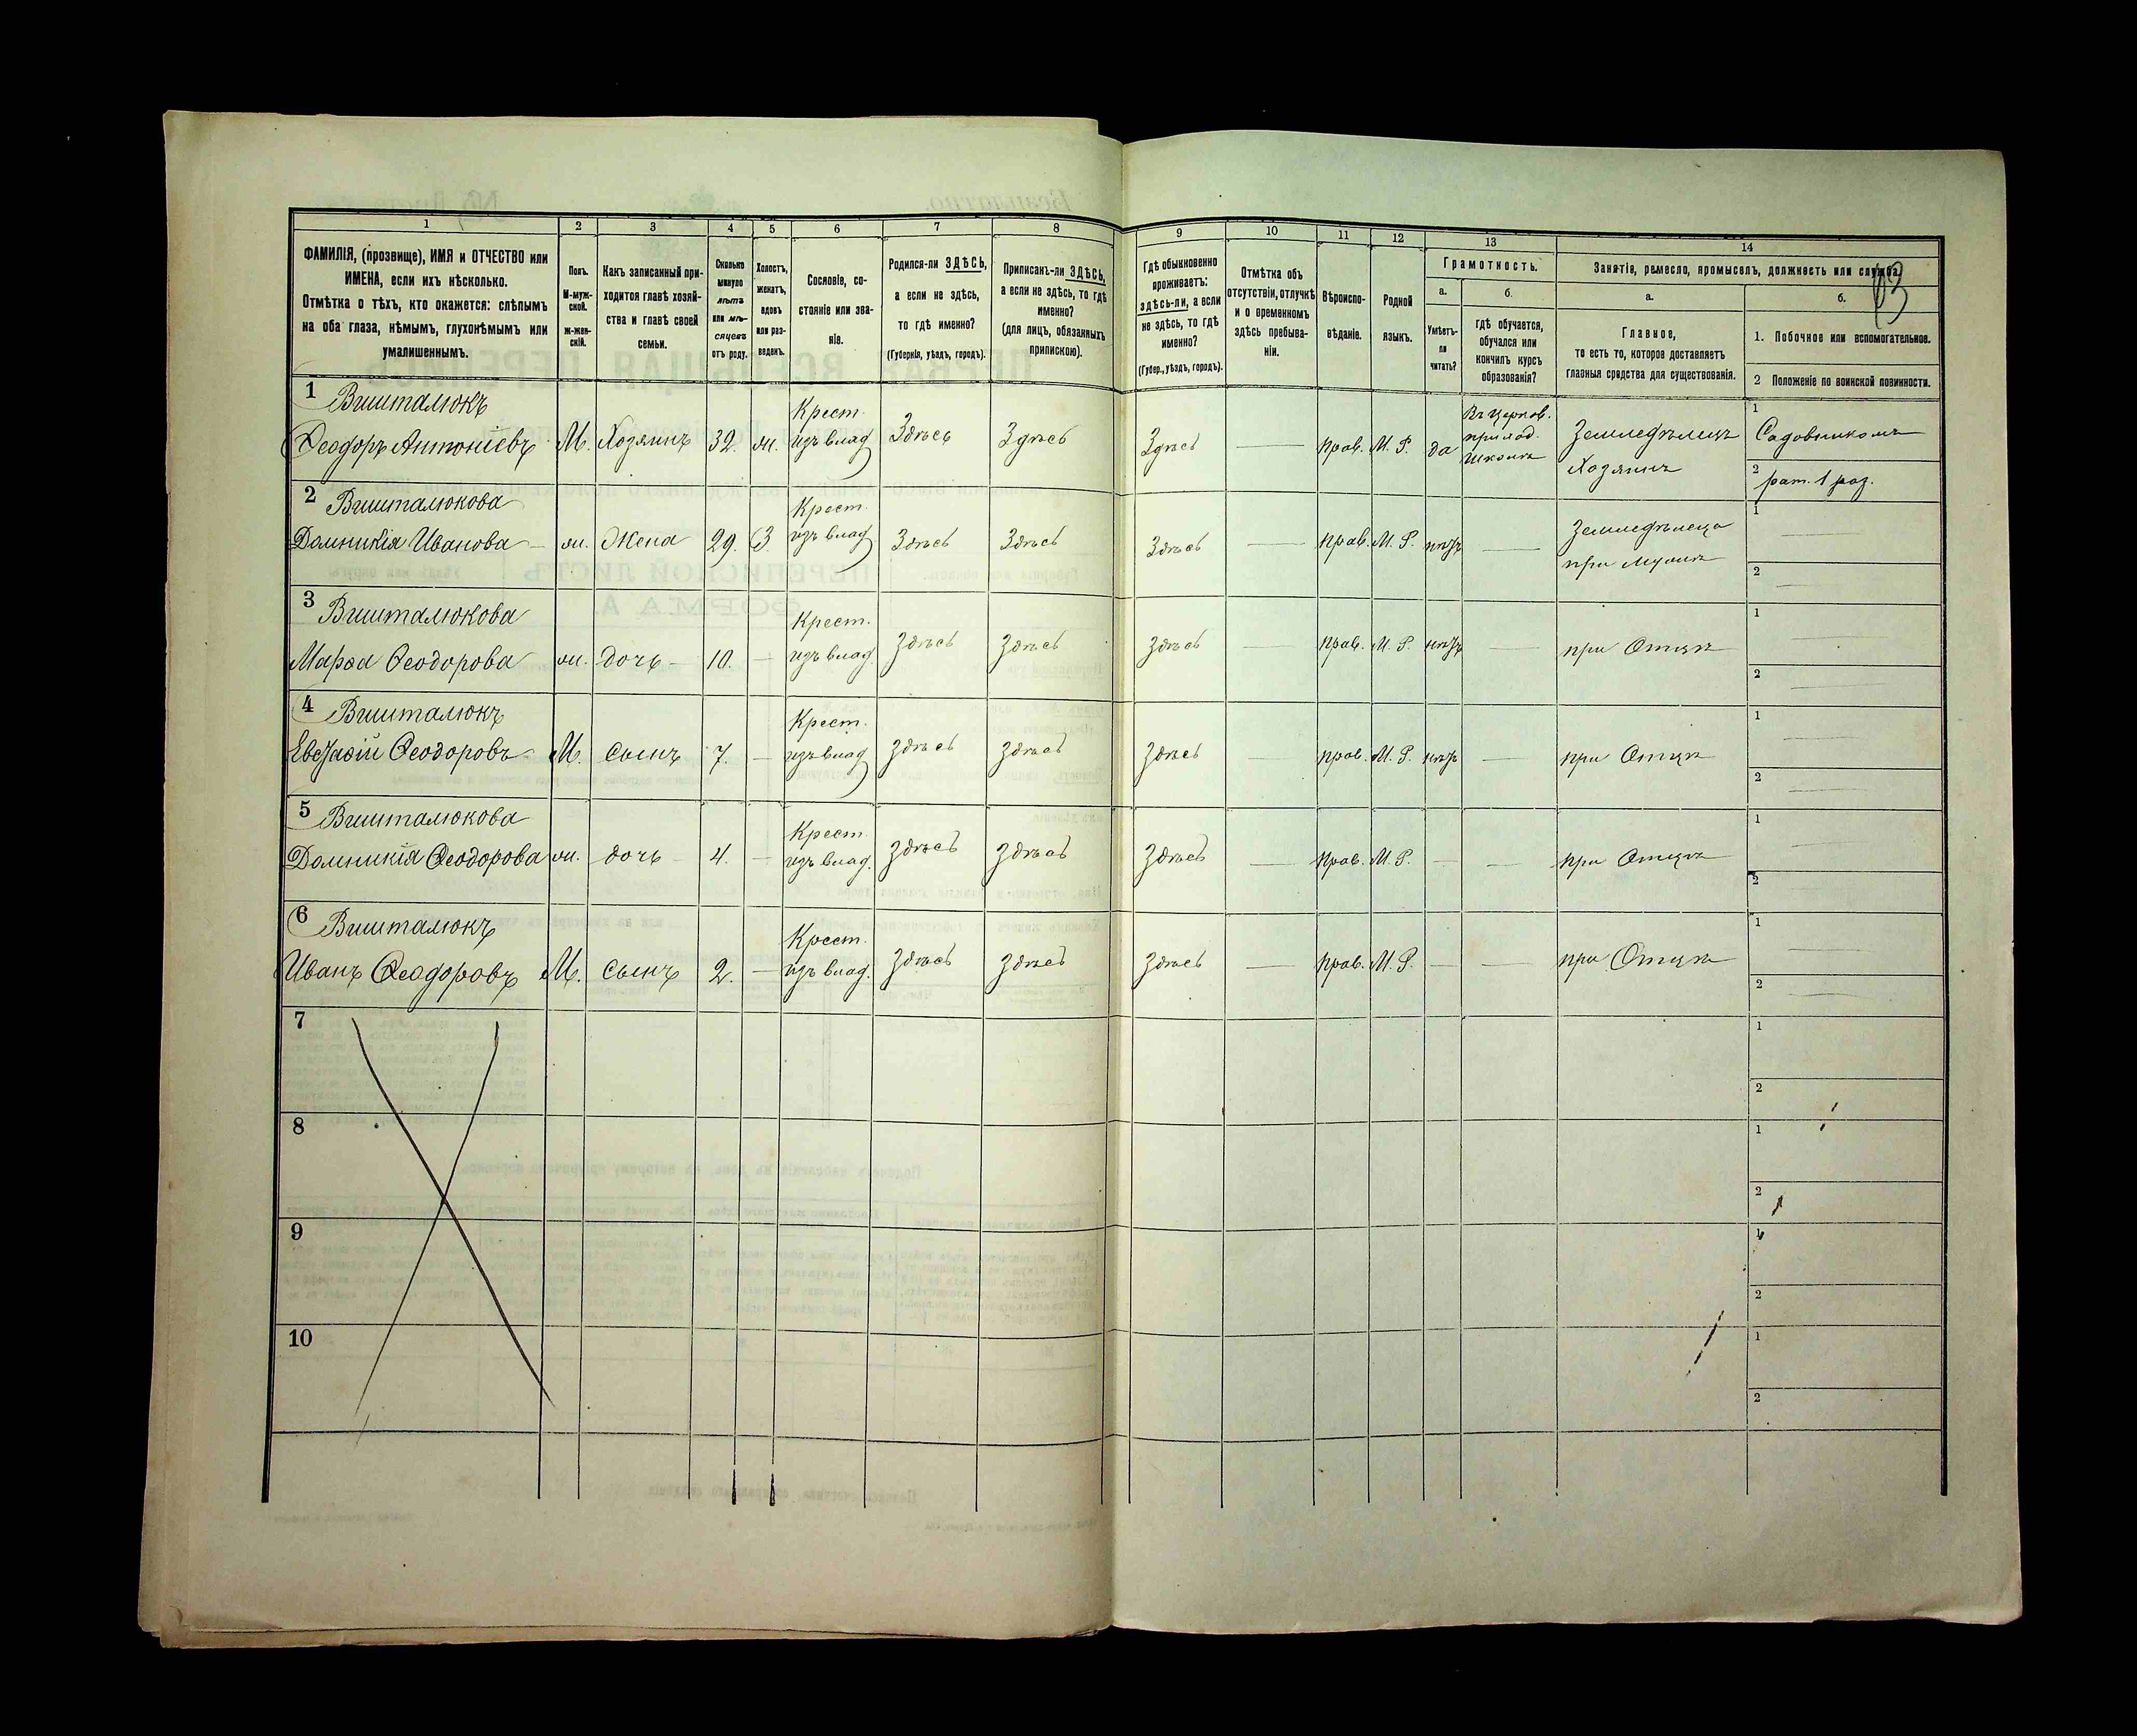 1 2 3 4 5 6 7 8 9 10 11 12 13 14
ФАМИЛІЯ, (прозвище), ИМЯ и ОТЧЕСТВО или
ИМЕНА, если ихъ нѣсколько.
Отмѣтка о тѣхъ, кто окажется: слѣпымъ
на оба глаза, нѣмымъ, глухонѣмымъ или
умалишеннымъ.
Полъ.
М-муж-
ской.
ж-жен-
скій.
Какъ записанный при-
ходится главѣ хозяй-
ства и главѣ своей
семьи.
Сколько
минуло
лѣтъ
или мѣ-
сяцевъ
отъ роду.
Холостъ,
женатъ,
вдовъ
или раз-
веденъ.
Сословіе, со-
стояніе или зва-
ніе.
Родился-ли ЗДѢСЬ,
а если не здѣсь,
то гдѣ именно?
(Губернія, уѣздъ, городъ).
Приписанъ-ли ЗДѢСЬ,
а если не здѣсь, то гдѣ
именно?
(для лицъ, обязанныхъ
припискою).
Гдѣ обыкновенно
проживаетъ:
здѣсь-ли, а если
не здѣсь, то гдѣ
именно?
(Губер., уѣздъ, городъ).
Отмѣтка объ
отсутствіи, отлучкѣ
и о временномъ
здѣсь пребыва-
ніи.
Вѣроиспо-
вѣданіе.
Родной
языкъ.
Грамотность.
а.
Умѣетъ-
ли
читать?
б.
гдѣ обучается,
обучался или
кончилъ курсъ
образованія?
Занятія, ремесло, промыселъ, должность или служба.
83
а.
Главное,
то есть то, которое доставляетъ
главныя средства для существованія.
б.
1. Побочное или вспомогательное.
2 Положеніе по воинской повинности.
1 Вишталюкъ
Ѳеодоръ Антоніевъ М. Хозяинъ 32. ж. Крест. изъ влад. Здѣсь Здѣсь Здѣсь — прав. М. Р. да
Въ церков.
приход.
школѣ
Земледѣлецъ
Хозяинъ
1 Садовникомъ
2 рат. 1 раз.
2 Вишталюкова
Домникія Иванова ж. Жена 29. З. Крест. изъ влад. Здѣсь Здѣсь Здѣсь — прав. М. Р. нѣтъ —
Земледѣлица
при мужѣ
1 —
2 —
3 Вишталюкова
Марѳа Ѳеодорова ж. дочь 10. — Крест. изъ влад. Здѣсь Здѣсь Здѣсь — прав. М. Р. нѣтъ — при Отцѣ
1 —
2 —
4 Вишталюкъ
Евстафій Ѳеодоровъ М. сынъ 7. — Крест. изъ влад. Здѣсь Здѣсь Здѣсь — прав. М. Р. нѣтъ — при Отцѣ
1 —
2 —
5 Вишталюкова
Домникія Ѳеодорова ж. дочь 4. — Крест. изъ влад. Здѣсь Здѣсь Здѣсь — прав. М. Р. — — при Отцѣ
1 —
2 —
6 Вишталюкъ
Иванъ Ѳеодоровъ М. сынъ 2. — Крест. изъ влад. Здѣсь Здѣсь Здѣсь — прав. М. Р. — — при Отцѣ
1 —
2 —
7
1
2
8
1
2
9
1
2
10
1
2